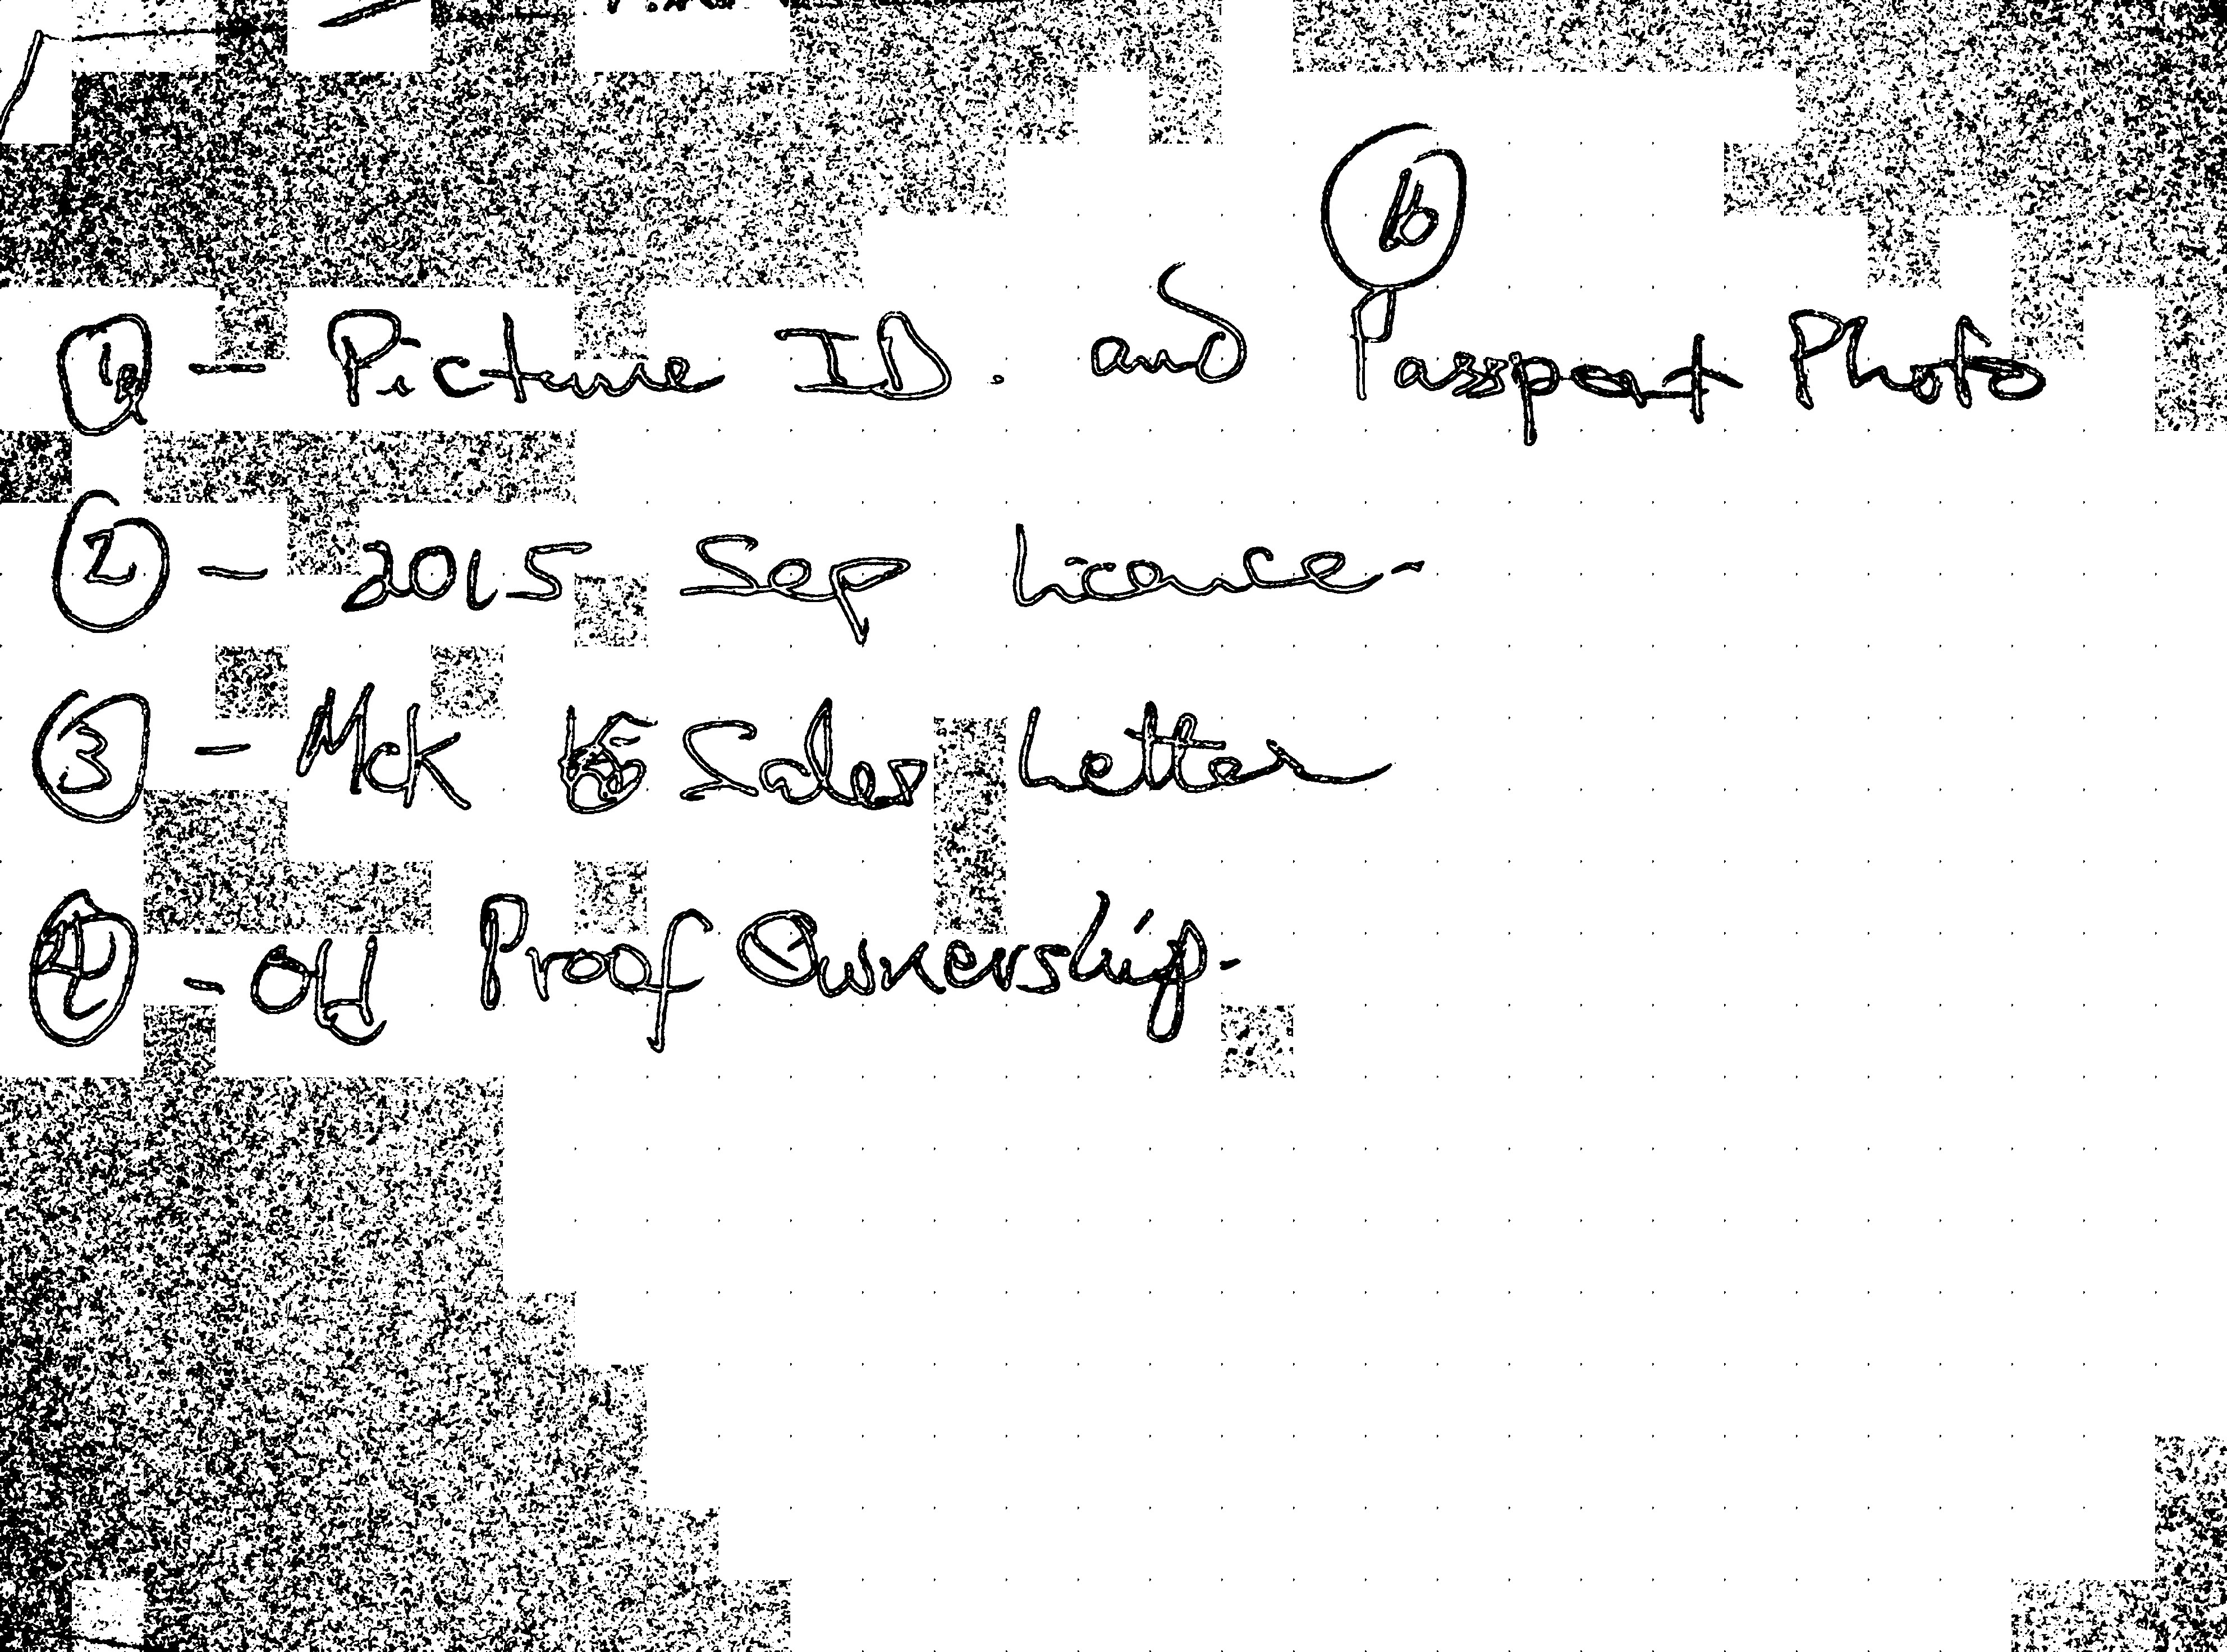 1b
1a - Picture ID. and Passport Photo
2 - 2015 Sep Licence-
3 - Mck Sales Letter
4 - Old Proof Ownership-